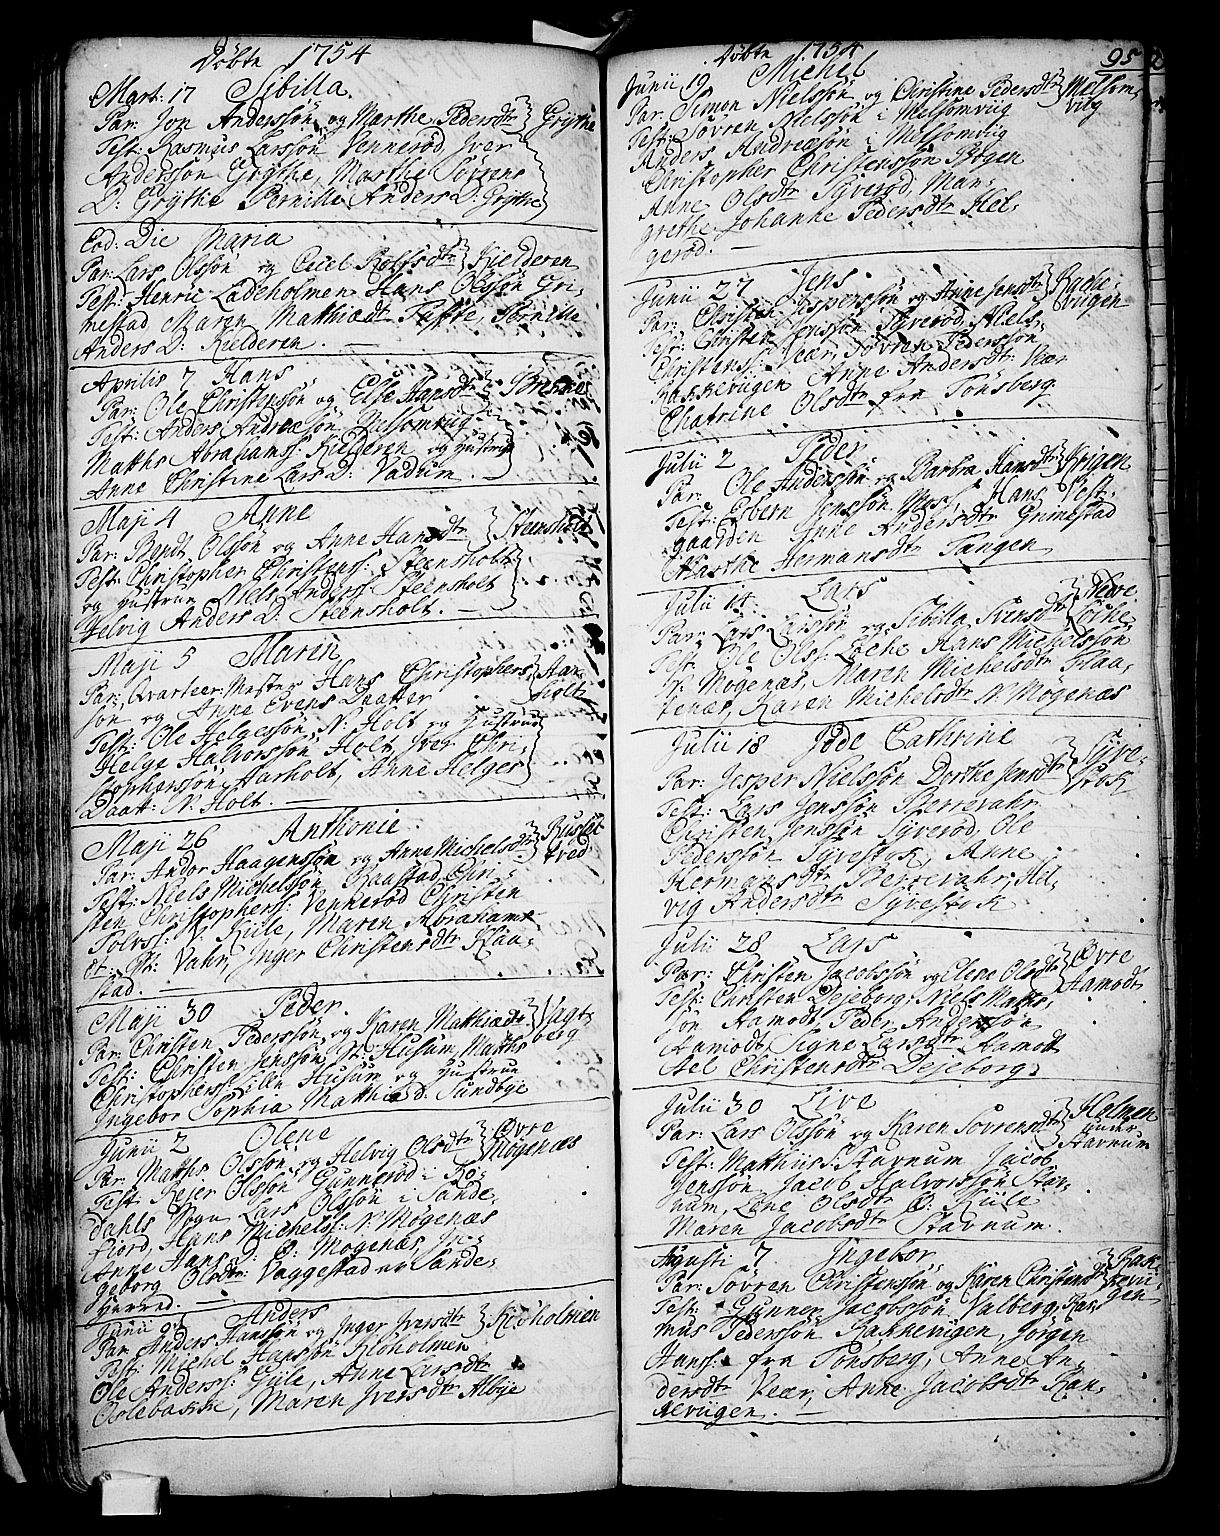 Døbte 1754
Mart: 17 Sibilla.
Par: Jon Anderssøn og Marthe Pedersdtr Grythe
Test: Rasmus Larssøn Vennerød, Iver
Anderssøn Grythe, Marthe Sørens
D: Grythe Pernille Anders D: Grythe
Eod: Die Maria
Par: Lars Olssøn og Cicel Rolfsdtr Kielderen
Test: Henric Ladeholmen Hans Olssøn Gri-
mestad Maren Matthiædtr Pernille
Anders D: Kielderen.
Aprilis 7 Hans
Par: Ole Christenssøn og Else Hansdtr
Test: Anders Andreæsøn Melsomvug
Matths Abrahamss: Kielderen og Hustrue
Anne Christine Lars D: Vadum.
Maji 4 Anne
Par: Bendt Olssøn og Anne Hansdtr Steensholt
Test: Christopher Christenss: Steensholt
og Hustrue Niels Anderss Steensholt
Helvig Anders D. Steensholt.
Maji 5 Maren
Par: Qvarteer-Mester Hans Christophers- Aar-
søn og Anne Evens Daatter holt
Test: Ole Helgessøn N: Holt og Hustrue
Helge Halvorssøn Holt, Iver Chri-
stopherssøn Aarholt, Anne Helges
Daatt: N: Holt.
Maji 26 Anthonie.
Par: Andor Haagenssøn og Anne Michelsdtr
Test: Niels Michelssøn Raastad, Chri-
sten Christopherss: Vennerød Christen
Tolvss: N: Kiile, Maren Abrahams
Vahr, Inger Christensdtr Raa-
stad.
Maji 30 Peder.
Par: Christen Pederssøn og Karen Mathiædtr Vagt-
Test: Christen Jenssøn St: Husum, Matths berg
Christopherss: Lille Husum og Hustrue
Ingebor Sophia Matthiæ D: Sundbye
Junii 2 Olene
Par: Matths Olssøn og Helvig Olsdtr Øvre
Test: Reier Olssøn Gunnerød i Ro- Møgenæs
dahls Sogn Lars Olssøn i Sande
fiord, Hans Michelss: N: Møgenæs
Anne Hans D: Ø: Møgenæs, In-
geborg Olsdtr: Vaggestad Sande-
Herred.
Junii Anders
Par: Anders Hanssøn og Inger Iversdtr Kloholmen
Test: Michel Hanssøn Kloholmen
Ole Anderss: Gule, Anne Larsdtr
Oslebakke, Maren Iversdtr Albye
Døbte 1754 95
Junii 19 Michel
Par: Simon Nielssøn og Christine Pedersdtr Melsom-
Test: Søvren Nielssøn i Melsomvug vug
Anders Andreæsøn i Melsomvug
Christopher Christenssøn Bogen
Anne Olsdtr Syverød, Mar-
grethe Johanne Pedersdtr Hel-
gerød.
Junii 27 Jens
Par: Christen Jesperssøn og Anne Jensdtr
Test: Christen Jenssøn Syverød, Niels
Christenss: Veær, Søvren Pederssøn
Rakkevugen Anne Andersdtr Vær
Chatrine Olsdtr fra Tønsberg
Julii 2 Peder
Par: Ole Anderssøn og Barbra Hansdtr Krigen
Test: Esbern Jenssøn Moss, Hans Vest-
gaarden Gune Andersdtr Grimestad
Marthe Hermansdtr Tangen
Julii 14 Lars
Par: Lars Larssøn og Sibilla Svensdtr Nedre
Test: Ole Olss: Leche Hans Michelssøn Leche
N: Møgenæs, Maren Michelsdtr Flaa-
tenæs, Karen Michelsdtr N: Møgenæs
Julii 18 Jode Cathrine
Par: Jesper Nielssøn Dorthe Jensdtr Syve-
Test: Lars Jenssøn Berrevahr stok
Christen Jenssøn Syverød, Ole
Pederssøn Syvestok, Anne
Hermansdtr Berrevahr, Hel-
vig Andersdtr Syvestok
Julii 28 Lars
Par: Christen Jacobssøn og Elene Olsdtr Øvre
Test: Christen Dejeborg, Niels Matths- Aamodt
søn Aamodt Peder Anderssøn
Aamodt, Signe Larsdtr Aamodt
Ael Christensdtr Dejeborg.
Julii 30 Live
Par: Lars Olssøn og Karen Sovrensdtr Holmen
under
Test: Matthius S: Stavnum Jacob Stavnum
Jenssøn Jacob Halvorssøn Stav-
num, Lene Olsdtr Ø: Kiile
Maren Jacobsdtr Stavnum.
Augusti 7 Ingebor.
Par: Søvren Christenssøn og Karen Christens Rak-
Test: Gunner Jacobssøn Valberg, Ras- kevu-
mus Pederssøn Rakkevugen, Jørgen gen
Hanss: fra Tønsberg, Anne An-
dersdtr Veær, Anne Jacobsdtr Rak-
kevugen.